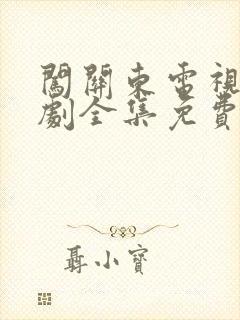 闖關東電視
劇全集免費
聶小寶